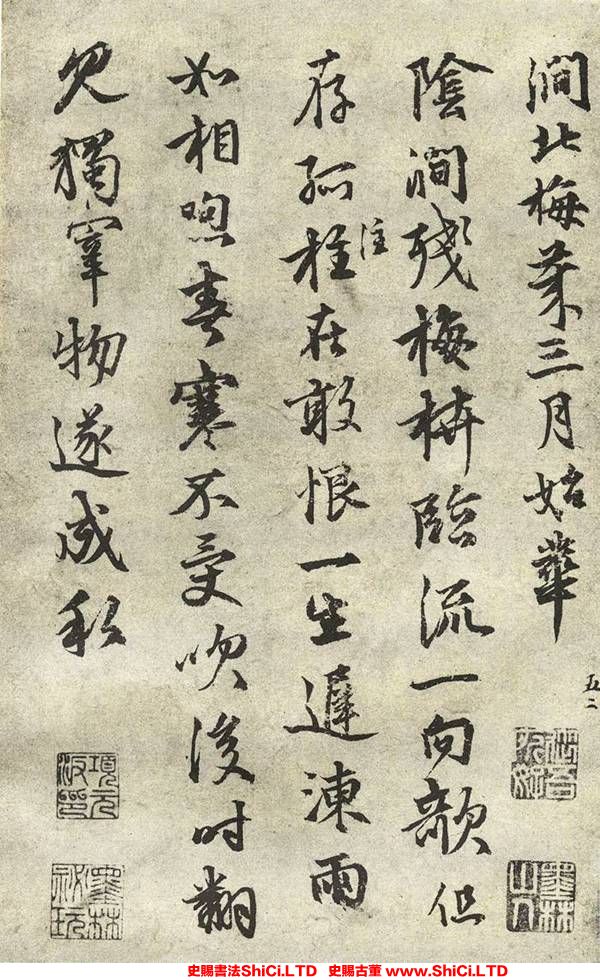 澗北梅三月始華
五二
陰澗殘梅枿臨流一向欹但
存孤在敢恨一生遲凍雨
如相喣春寒不受吹後时翻
見獨羣物遂成私
墨林山人
項元汴印
墨林祕玩
史賜書法ShiCi.LTD 史賜古董 www.ShiCi.LTD